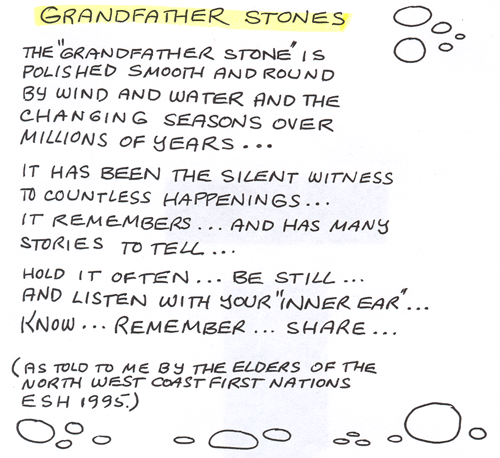 GRANDFATHER STONES
THE "GRANDFATHER STONE" IS
POLISHED SMOOTH AND ROUND
BY WIND AND WATER AND THE
CHANGING SEASONS OVER
MILLIONS OF YEARS...
IT HAS BEEN THE SILENT WITNESS
TO COUNTLESS HAPPENINGS...
IT REMEMBERS... AND HAS MANY
STORIES TO TELL...
HOLD IT OFTEN... BE STILL...
AND LISTEN WITH YOUR "INNER EAR"...
KNOW... REMEMBER... SHARE...
(AS TOLD TO ME BY THE ELDERS OF THE
NORTH WEST COAST FIRST NATIONS
ESH 1995.)